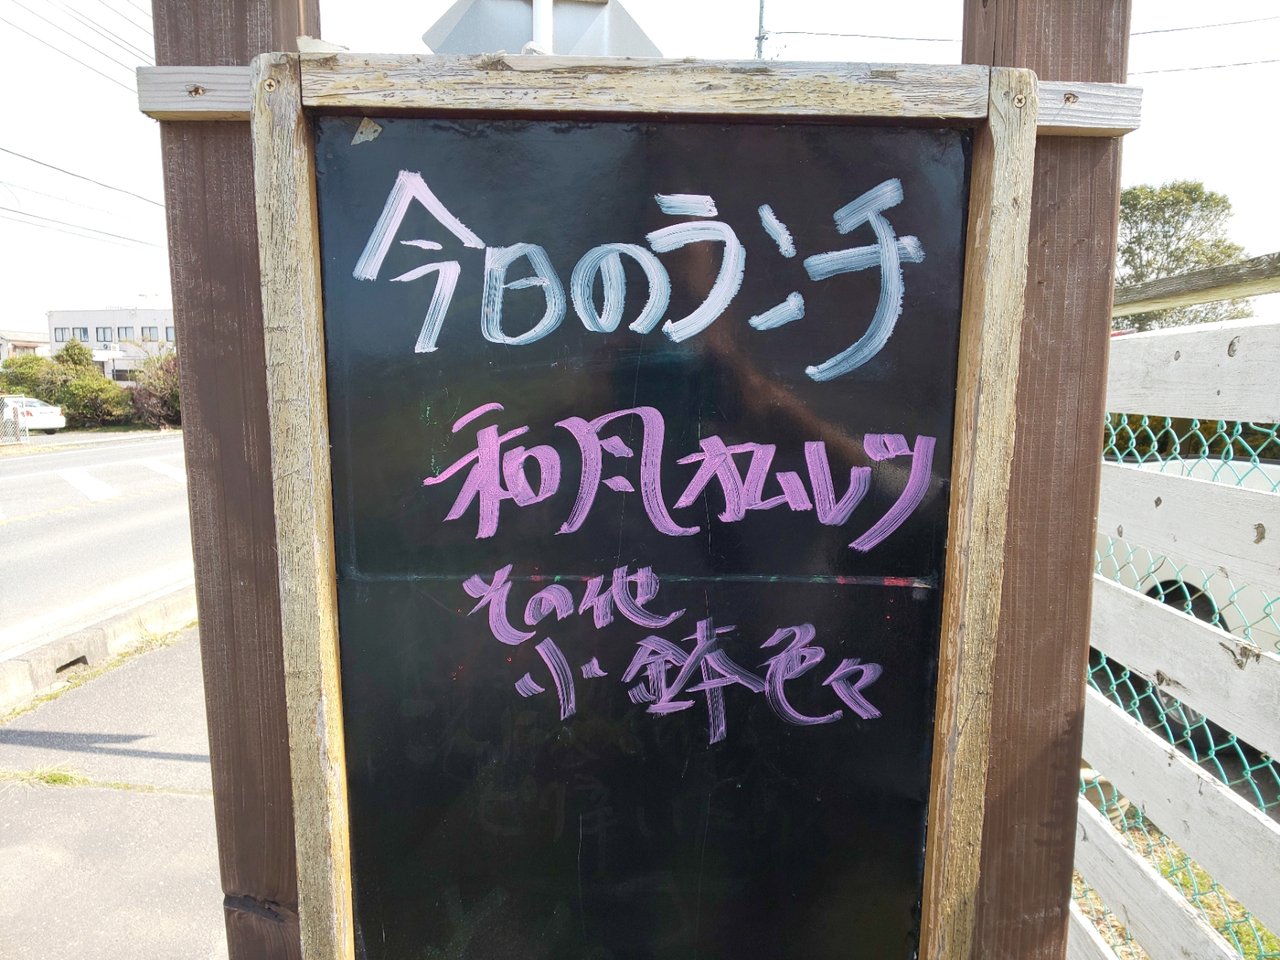 今日のランチ
和風オムレツ
その他
小鉢色々